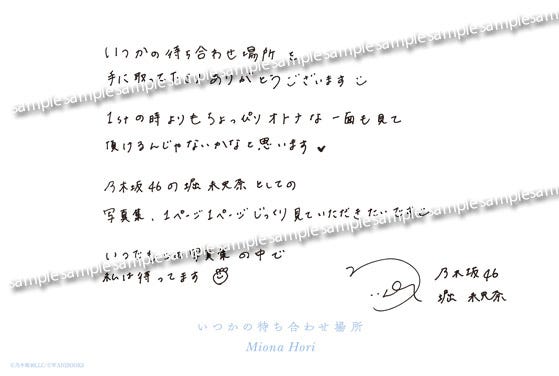 いつかの待ち合わせ場所を
手に取ってくださりありがとうございます
1stの時よりもちょっぴりオトナな一面も見て
頂けるんじゃないかなと思います♥
乃木坂46の堀未央奈としての
写真集、1ページ1ページじっくり見ていただきたいです
写真集の中で
私は待ってます
乃木坂46
堀未央奈
いつかの待ち合わせ場所
Miona Hori
sample sample sample sample sample sample sample sample sample
sample sample sample sample sample sample sample sample sample
sample sample sample sample sample sample sample sample sample